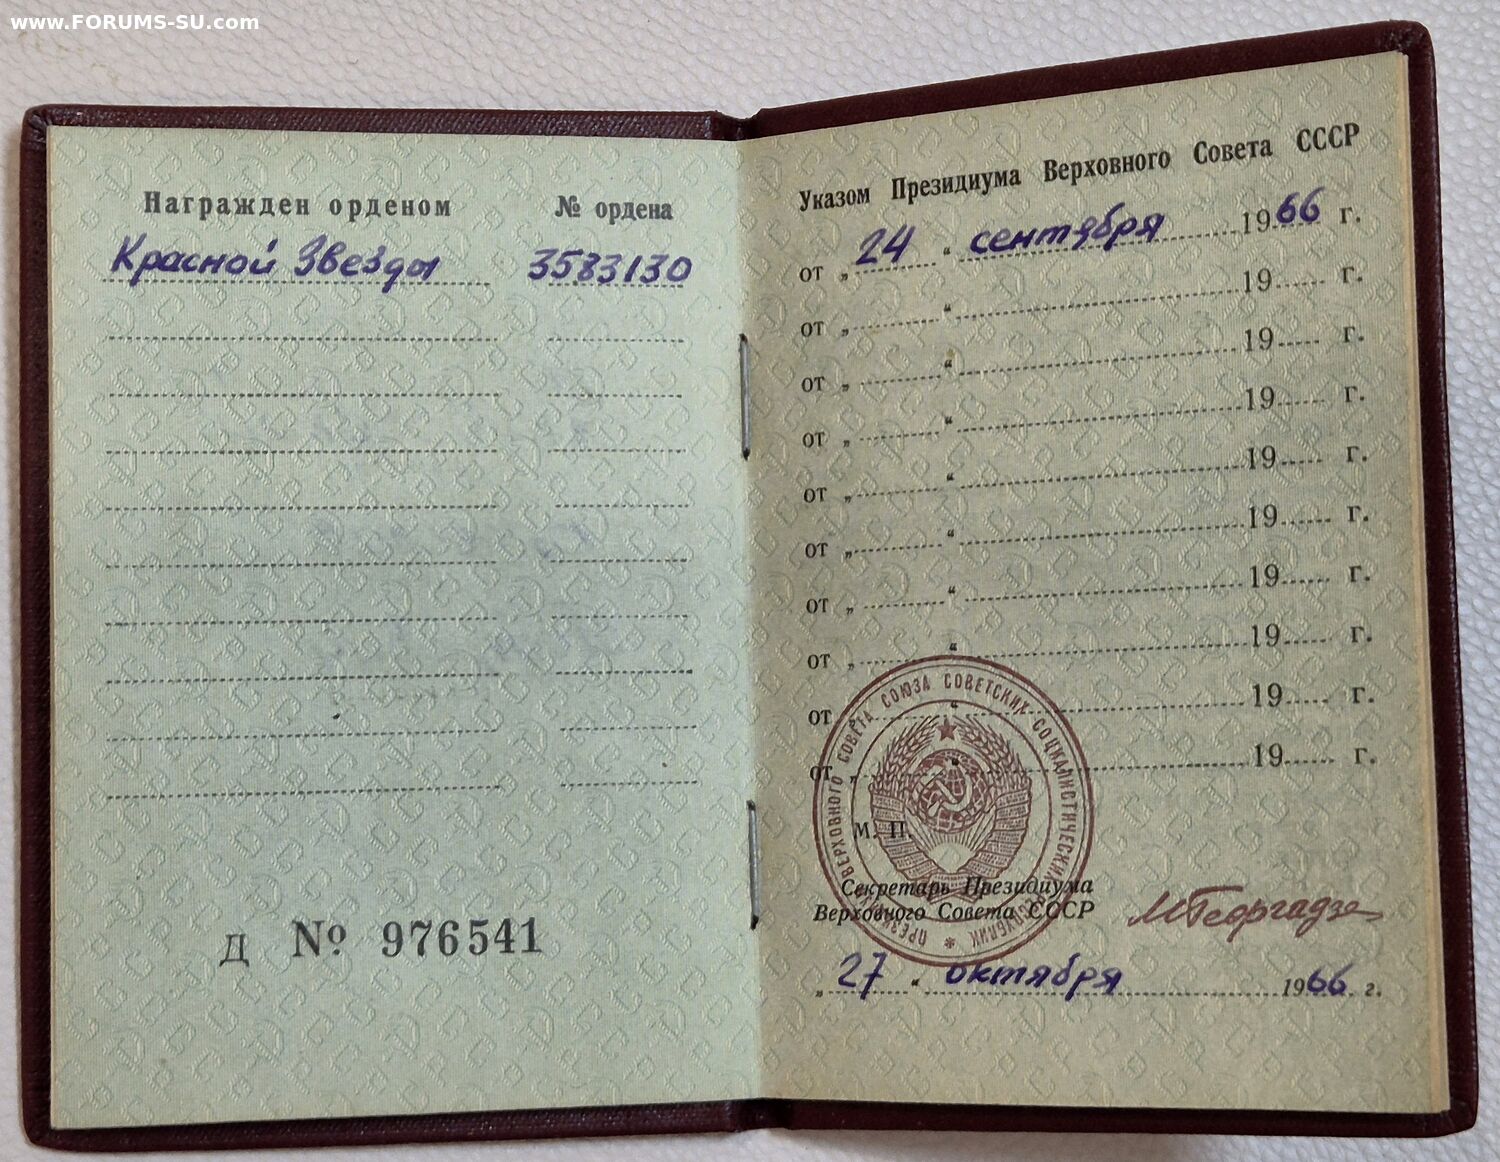 www.FORUMS-SU.com
Награжден орденом № ордена
Красной Звезды 3583130
Д № 976541
Указом Президиума Верховного Совета СССР
от „ 24 “ сентября 1966 г.
от „ “ 19 г.
от „ “ 19 г.
от „ “ 19 г.
от „ “ 19 г.
от „ “ 19 г.
от „ “ 19 г.
от „ “ 19 г.
от „ “ 19 г.
от „ “ 19 г.
ПРЕЗИДИУМ ВЕРХОВНОГО СОВЕТА СОЮЗА СОВЕТСКИХ СОЦИАЛИСТИЧЕСКИХ РЕСПУБЛИК *
М. П.
Секретарь Президиума
Верховного Совета СССР МГеоргадзе
„ 27 “ октября 1966 г.